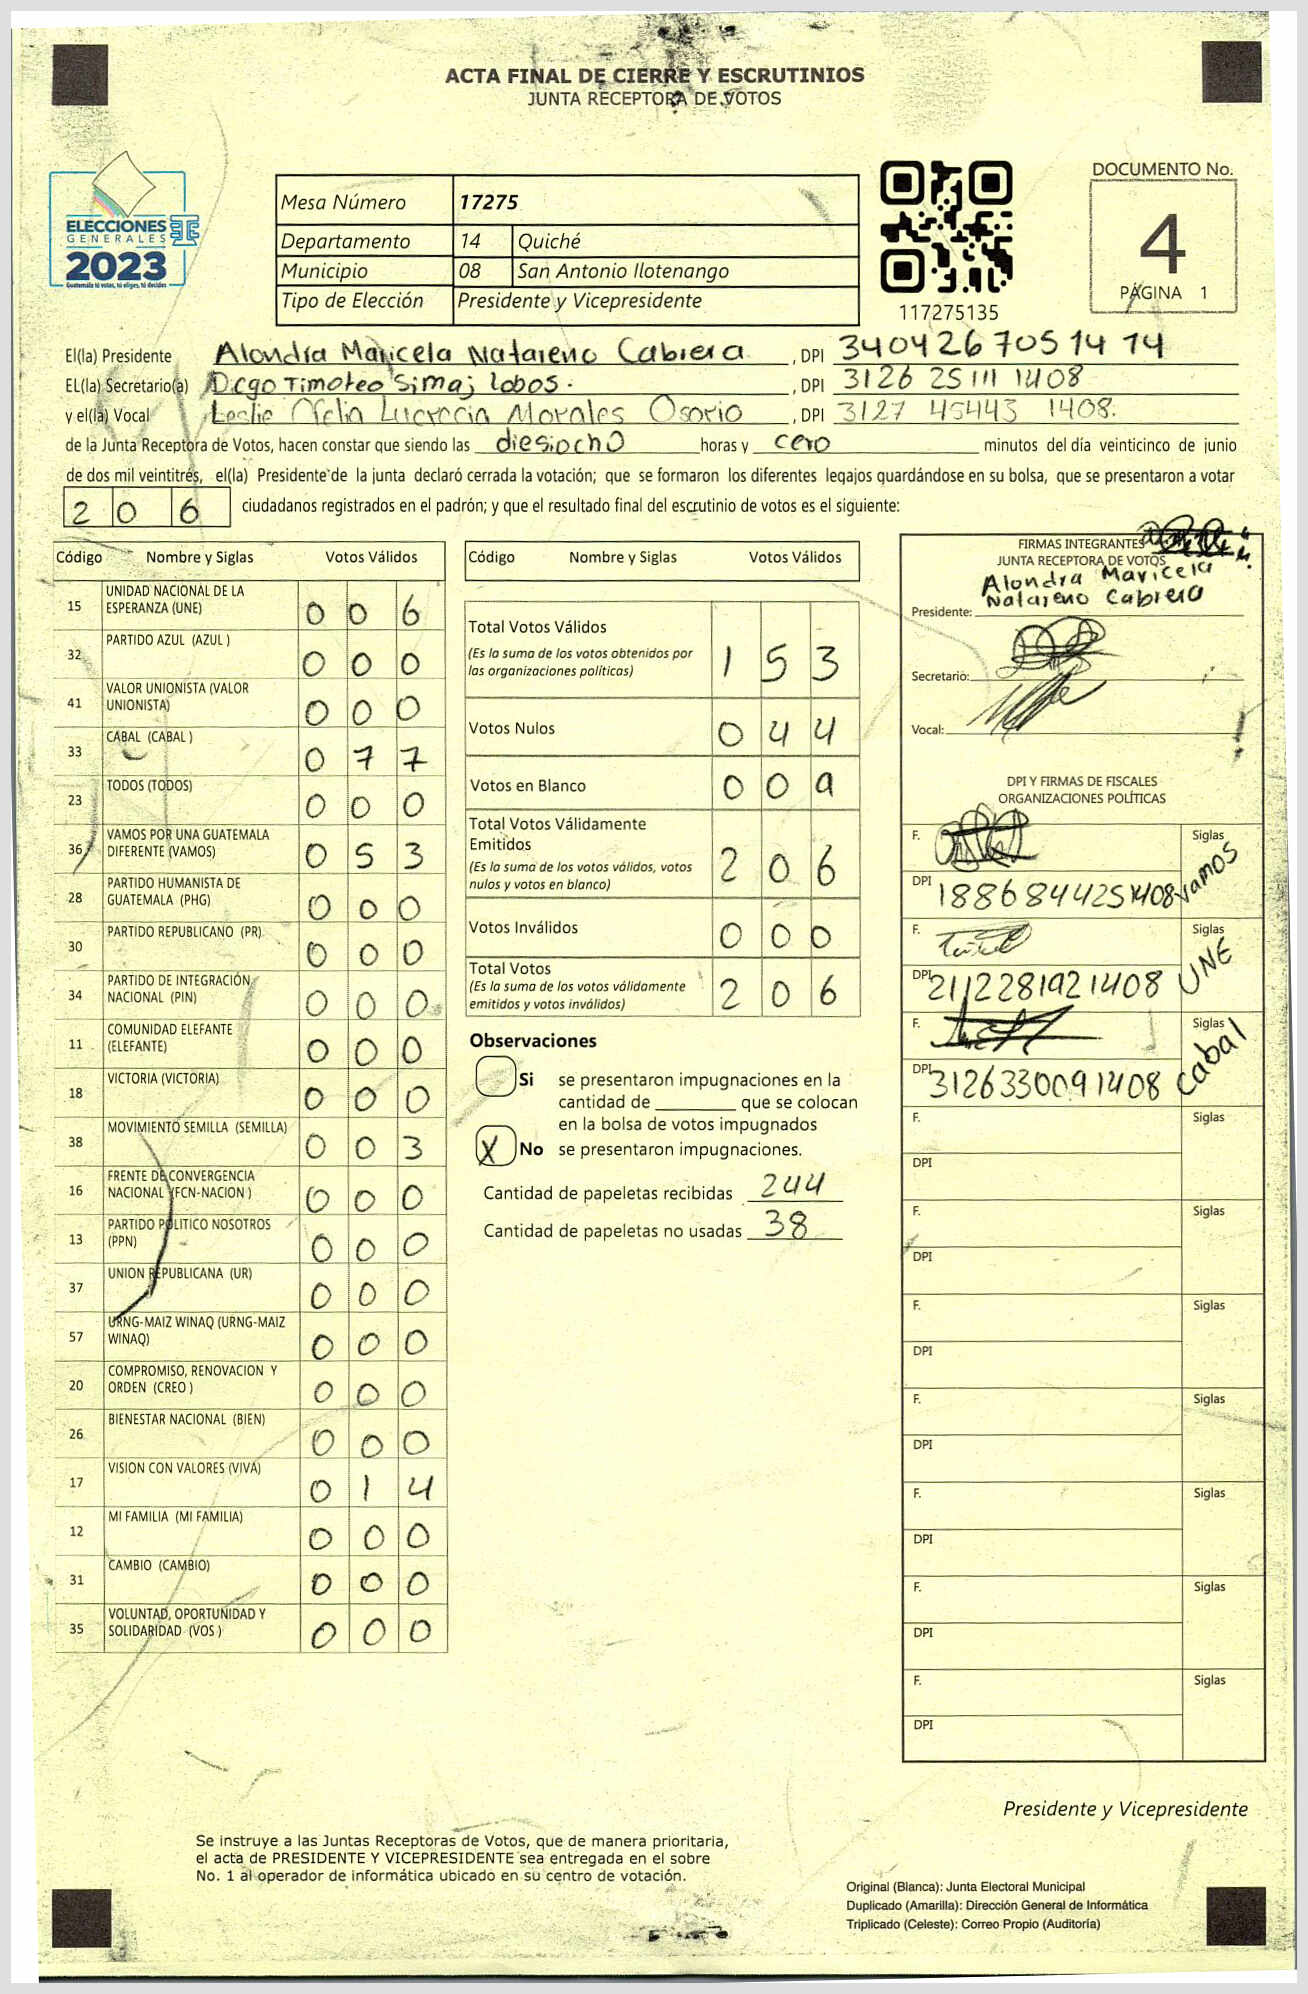 ACTA FINAL DE CIERRE Y ESCRUTINIOS
JUNTA RECEPTORA DE VOTOS
ELECCIONES
GENERALES
2023
Guatemala tú votas, tú eliges, tú decides
Mesa Número 17275
Departamento 14 Quiché
Municipio 08 San Antonio Ilotenango
Tipo de Elección Presidente y Vicepresidente
117275135
DOCUMENTO No.
4
PÁGINA 1
El(la) Presidente Alondra Maricela Natareno Cabrera, DPI 3404267051414
EL(la) Secretario(a) Diego Timoteo Simaj Lobos., DPI 3126 25111 1408
y el(la) Vocal Leslie Ofelia Lucrecia Morales Osorio, DPI 3127 45443 1408.
de la Junta Receptora de Votos, hacen constar que siendo las diesiocho horas y cero minutos del día veinticinco de junio
de dos mil veintitrés, el(la) Presidente de la junta declaró cerrada la votación; que se formaron los diferentes legajos guardándose en su bolsa, que se presentaron a votar
206 ciudadanos registrados en el padrón; y que el resultado final del escrutinio de votos es el siguiente:
Código Nombre y Siglas Votos Válidos
15 UNIDAD NACIONAL DE LA ESPERANZA (UNE) 0 0 6
32 PARTIDO AZUL (AZUL ) 0 0 0
41 VALOR UNIONISTA (VALOR UNIONISTA) 0 0 0
33 CABAL (CABAL ) 0 7 7
23 TODOS (TODOS) 0 0 0
36 VAMOS POR UNA GUATEMALA DIFERENTE (VAMOS) 0 5 3
28 PARTIDO HUMANISTA DE GUATEMALA (PHG) 0 0 0
30 PARTIDO REPUBLICANO (PR) 0 0 0
34 PARTIDO DE INTEGRACIÓN NACIONAL (PIN) 0 0 0
11 COMUNIDAD ELEFANTE (ELEFANTE) 0 0 0
18 VICTORIA (VICTORIA) 0 0 0
38 MOVIMIENTO SEMILLA (SEMILLA) 0 0 3
16 FRENTE DE CONVERGENCIA NACIONAL (FCN-NACION ) 0 0 0
13 PARTIDO POLITICO NOSOTROS (PPN) 0 0 0
37 UNION REPUBLICANA (UR) 0 0 0
57 URNG-MAIZ WINAQ (URNG-MAIZ WINAQ) 0 0 0
20 COMPROMISO, RENOVACION Y ORDEN (CREO ) 0 0 0
26 BIENESTAR NACIONAL (BIEN) 0 0 0
17 VISION CON VALORES (VIVA) 0 1 4
12 MI FAMILIA (MI FAMILIA) 0 0 0
31 CAMBIO (CAMBIO) 0 0 0
35 VOLUNTAD, OPORTUNIDAD Y SOLIDARIDAD (VOS ) 0 0 0
Código Nombre y Siglas Votos Válidos
Total Votos Válidos 1 5 3
(Es la suma de los votos obtenidos por
las organizaciones políticas)
Votos Nulos 0 4 4
Votos en Blanco 0 0 9
Total Votos Válidamente
Emitidos 2 0 6
(Es la suma de los votos válidos, votos
nulos y votos en blanco)
Votos Inválidos 0 0 0
Total Votos 2 0 6
(Es la suma de los votos válidamente
emitidos y votos inválidos)
Observaciones
Si se presentaron impugnaciones en la
cantidad de ________ que se colocan
en la bolsa de votos impugnados
X No se presentaron impugnaciones.
Cantidad de papeletas recibidas 244
Cantidad de papeletas no usadas 38
FIRMAS INTEGRANTES
JUNTA RECEPTORA DE VOTOS
Alondra Maricela
Presidente: Natareno Cabrera
Secretario:
Vocal:
DPI Y FIRMAS DE FISCALES
ORGANIZACIONES POLÍTICAS
F. Siglas
DPI 1886844251408 vamos
F. Siglas
DPI 2112281921408 UNE
F. Siglas
DPI 3126330091408 cabal
F. Siglas
DPI
F. Siglas
DPI
F. Siglas
DPI
F. Siglas
DPI
F. Siglas
DPI
F. Siglas
DPI
F. Siglas
DPI
Presidente y Vicepresidente
Se instruye a las Juntas Receptoras de Votos, que de manera prioritaria,
el acta de PRESIDENTE Y VICEPRESIDENTE sea entregada en el sobre
No. 1 al operador de informática ubicado en su centro de votación.
Original (Blanca): Junta Electoral Municipal
Duplicado (Amarilla): Dirección General de Informática
Triplicado (Celeste): Correo Propio (Auditoría)